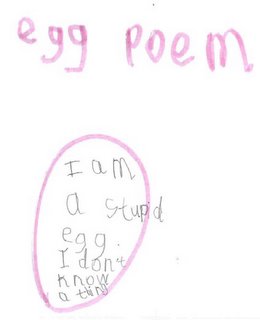 egg poem
I am
a stupid
egg.
I don't
know
a thing